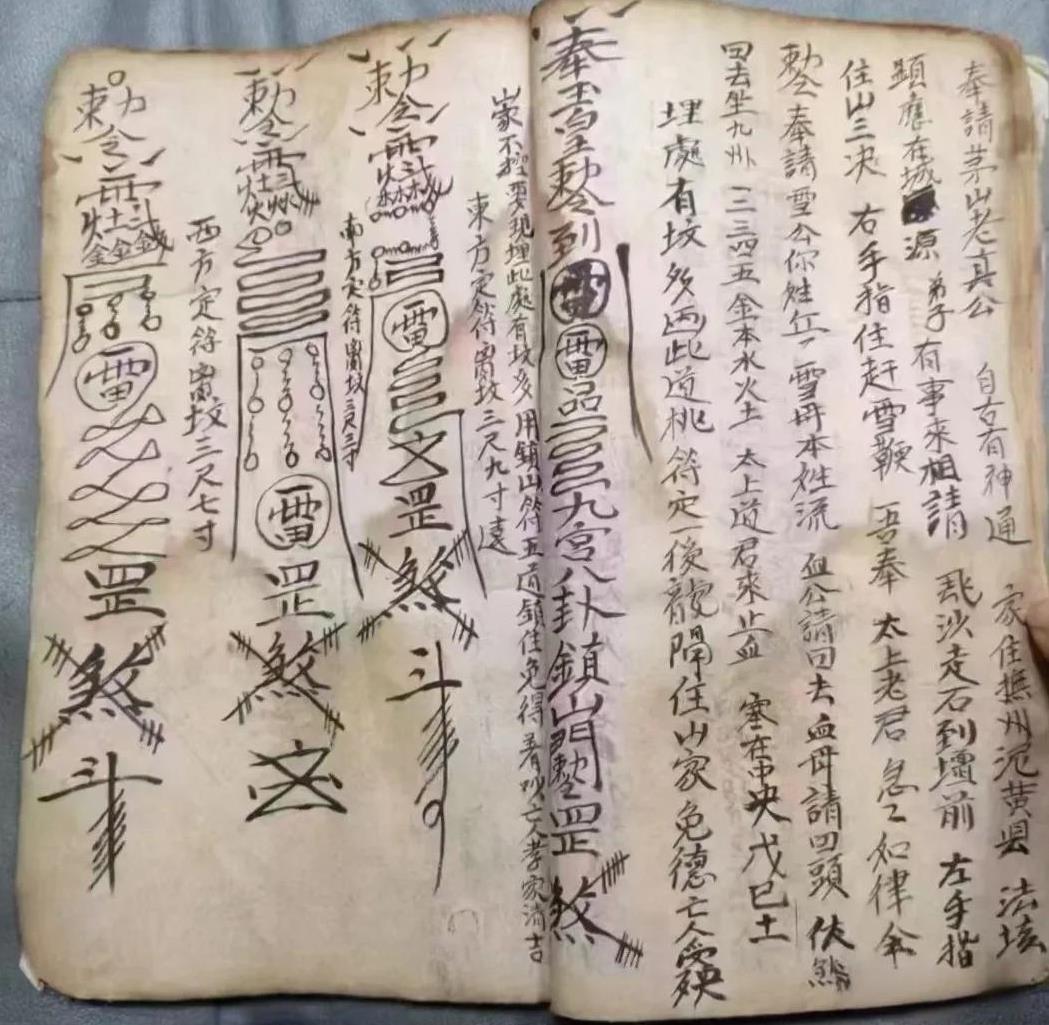 奉請茅山老真公 自古有神通 家住撫州范黄县 法垓
顕應在城源 弟子有事来相請 飛沙走石到壇前 左手指
住山三决 右手指住赶雪鞭 吾奉太上老君急々如律令
勅令奉請雪公你姓丘 雪母本姓流 血公請回去 血母請回頭 伏煞
回去坐九州 一二三四五 金木水火土 太上道君来止血 塞在中央戊巳土
埋處有坟多 画此道桃符定一後龍 隔住山家免德亡人受殃
奉玉皇勅令到雷雷品九宫八卦鎮山門勅令罡煞
家不 要現埋此處有坟多 用鎖山符五道鎖住免得着吵亡人孝家清吉
東方定符离坟三尺九寸遠
勅令 雷 罡煞 斗
南方定符离坟三尺三寸
勅令 雷 罡煞
西方定符离坟三尺七寸
勅令 金金錢 雷 罡煞 斗